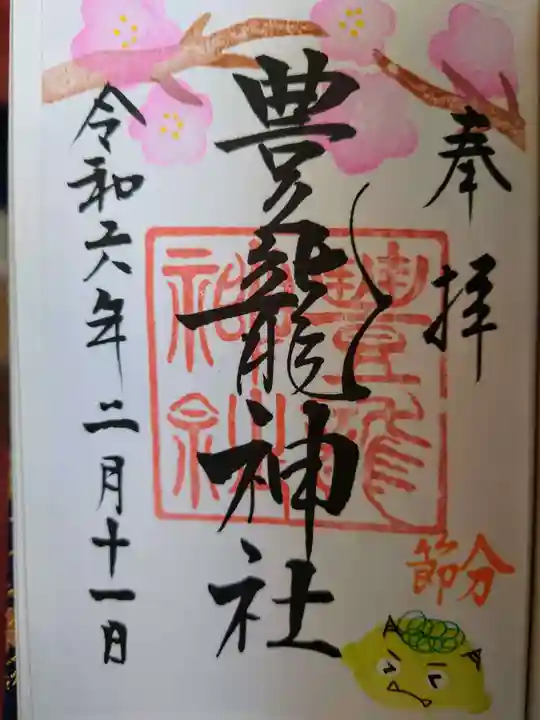 奉拝
節分
豊龍神社
豊龍神社
令和六年二月十一日